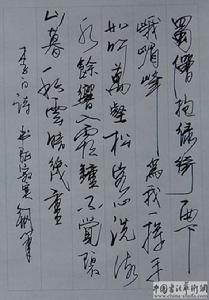 蜀僧抱綠綺西下
峨嵋峰為我一揮手
如听萬壑松客心洗流
水餘響入霜鐘不覺碧
山暮秋雲暗幾重
李白詩